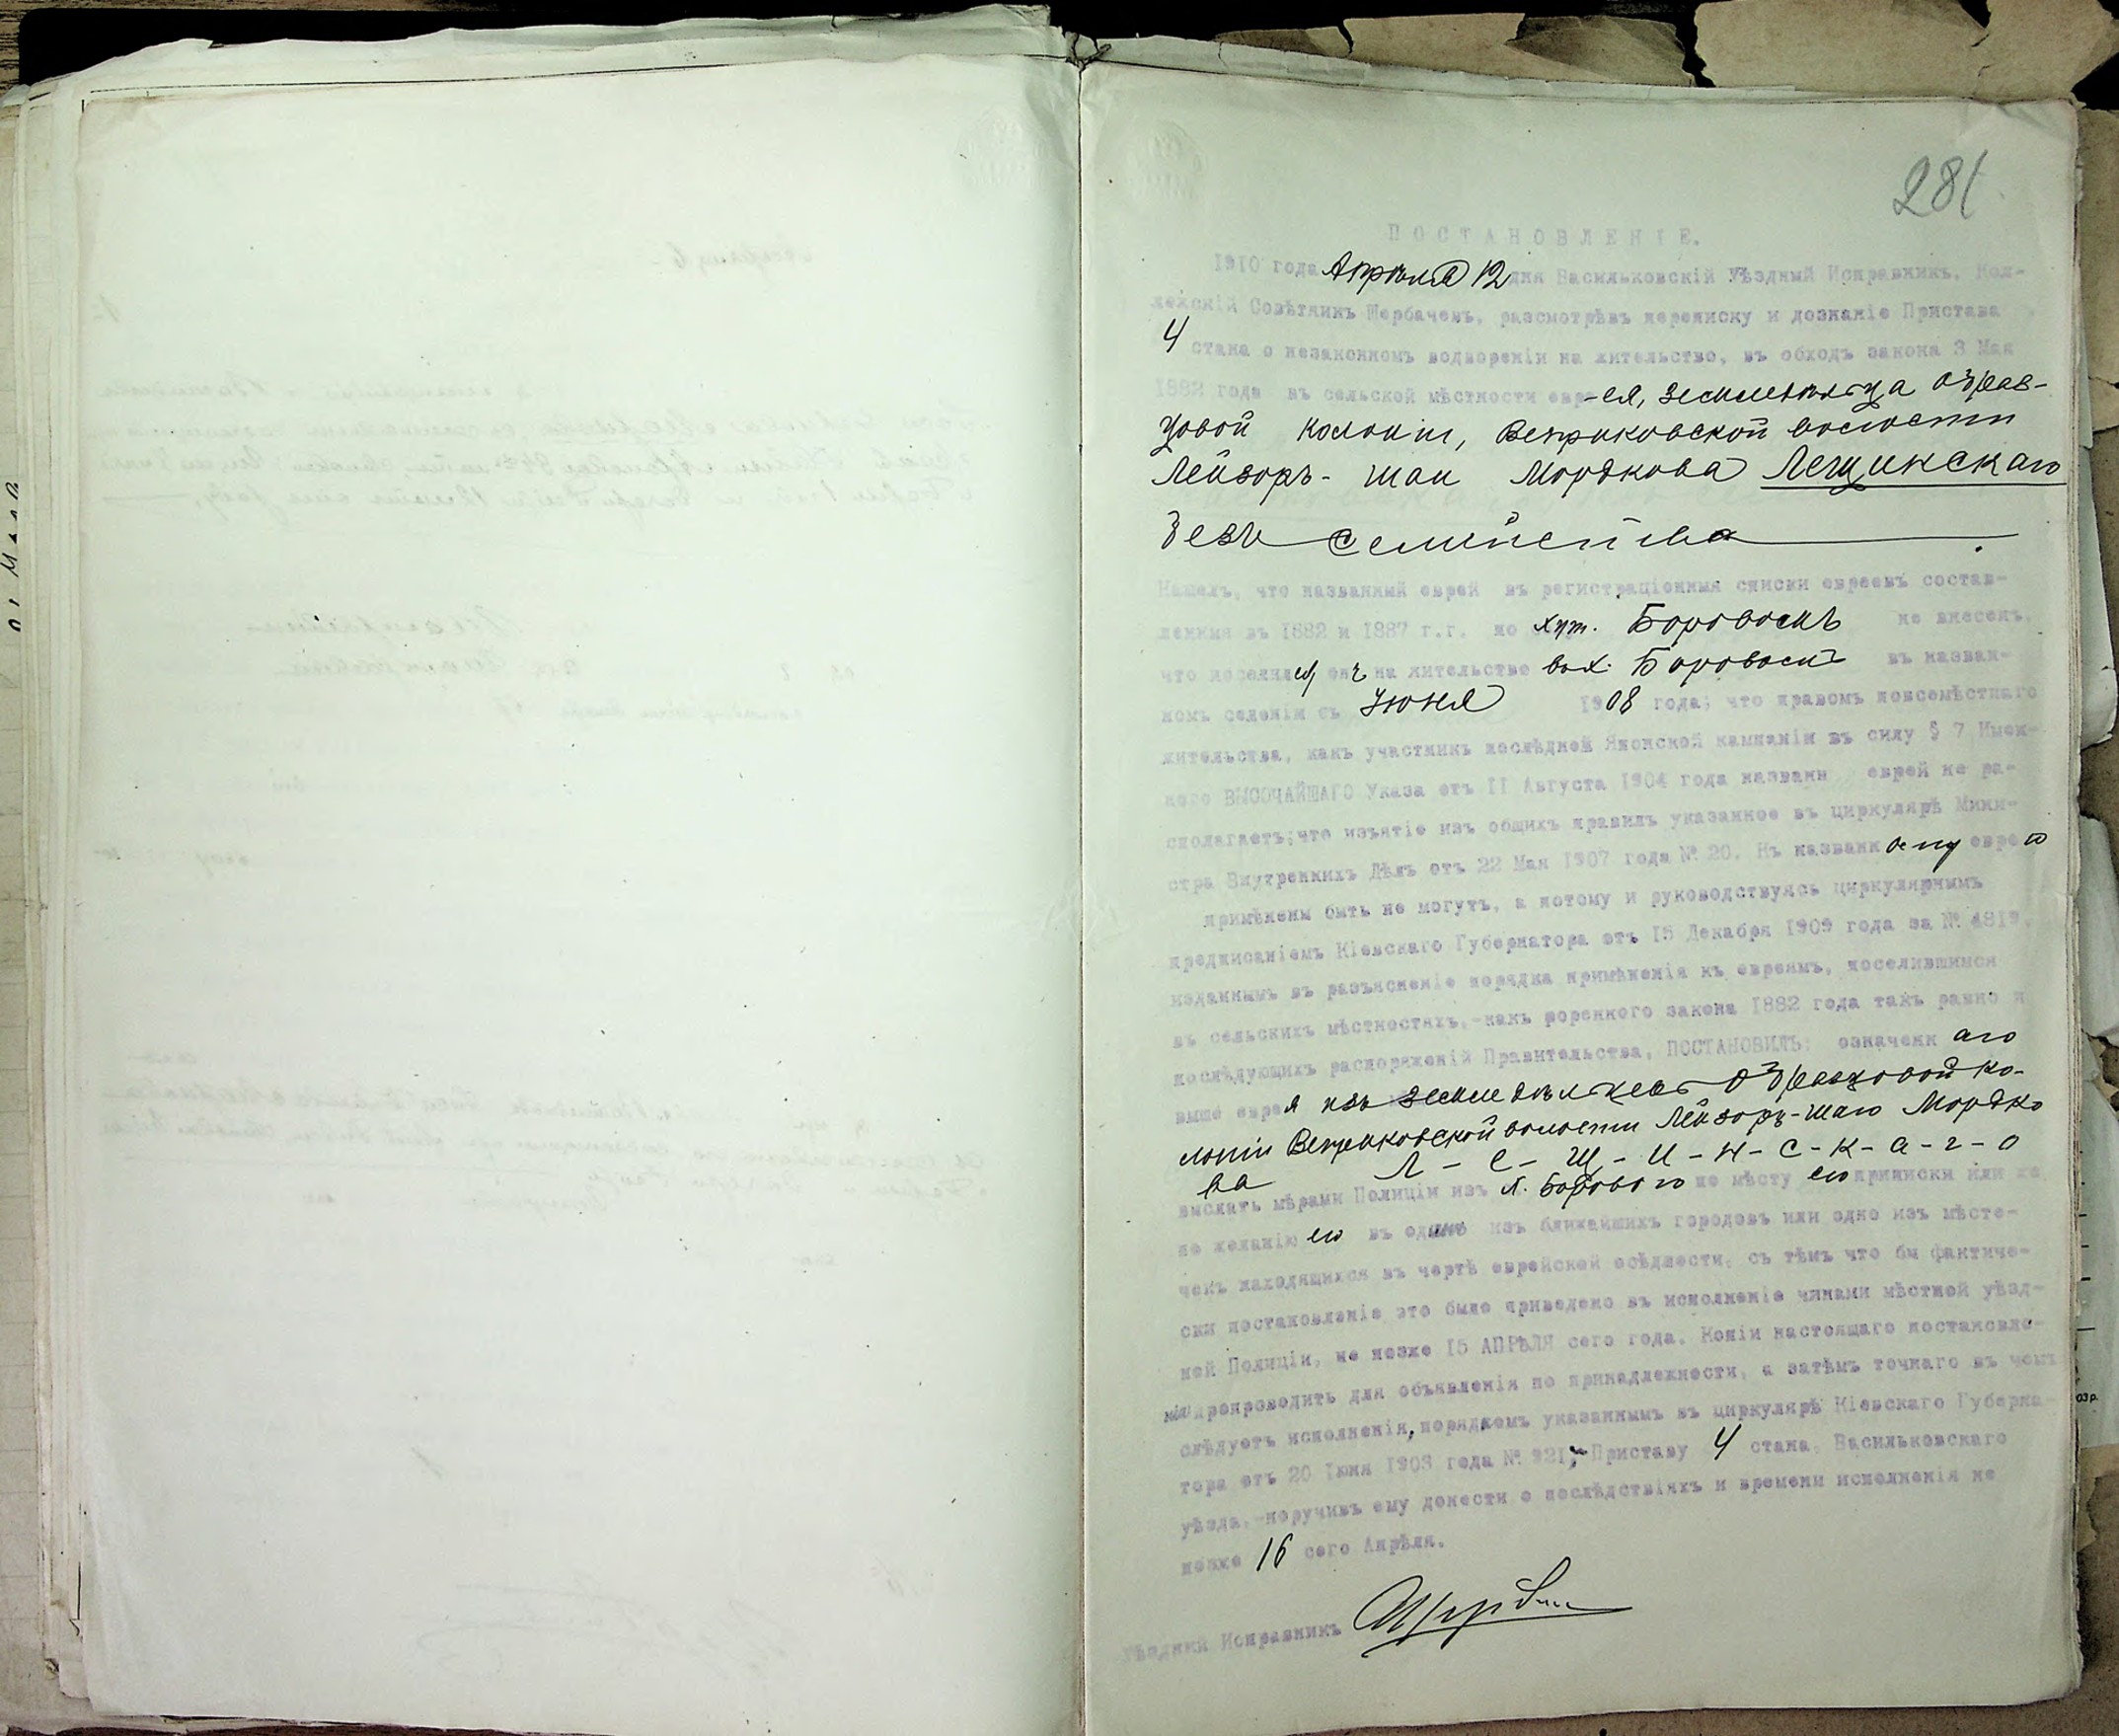 281
ПОСТАНОВЛЕНІЕ.
1910 года Апрѣля 12 дня Васильковскій Уѣздный Исправникъ, Кол-
лежскій Совѣтникъ Щербачевъ, разсмотрѣвъ переписку и дознаніе Пристава
4 стана о незаконномъ водвореніи на жительство, въ обходъ закона 3 Мая
1882 года въ сельской мѣстности евр-ея, земледѣльца Образ-
цовой колоніи, Веприковской волости
Лейзоръ-Шаи Мордкова Лещинскаго
безъ семейства
Нашелъ, что названный еврей въ регистраціонныя списки евреевъ состав-
ленныя въ 1882 и 1887 г.г. по хут. Боровомъ не внесенъ,
что поселился онъ на жительство въ х. Боровомъ въ назван-
номъ селеніи съ Июня 1908 года; что правомъ повсемѣстнаго
жительства, какъ участникъ послѣдней Японской кампаніи въ силу § 7 Имен-
ного ВЫСОЧАЙШАГО Указа отъ 11 Августа 1904 года названн еврей не ра-
сполагаетъ; что изъятіе изъ общихъ правилъ указанное въ циркулярѣ Мини-
стра Внутреннихъ Дѣлъ отъ 22 Мая 1907 года № 20. Къ названному еврею
примѣнены быть не могутъ, а потому и руководствуясь циркулярнымъ
предписаніемъ Кіевскаго Губернатора отъ 15 Декабря 1909 года за № 4819,
изданнымъ въ разъясненіе порядка примѣненія къ евреямъ, поселившимся
въ сельскихъ мѣстностяхъ,-какъ коренного закона 1882 года такъ равно и
послѣдующихъ распоряженій Правительства, ПОСТАНОВИЛЪ: означеннаго
выше еврея изъ земледѣльцевъ Образцовой ко-
лоніи Веприковской волости Лейзоръ-Шаю Мордко
ва Л-е-щ-и-н-с-к-а-г-о
выслать мѣрами Полиціи изъ х. Борового по мѣсту его приписки или же
по желанію его въ одинъ изъ ближайшихъ городовъ или одно изъ мѣсте-
чекъ находящихся въ чертѣ еврейской осѣдлости, съ тѣмъ что бы фактиче-
ски постановленіе это было приведено въ исполненіе чинами мѣстной уѣзд-
ной Полиціи, не позже 15 АПРѢЛЯ сего года. Копіи настоящаго постановле-
нія препроводить для объявленія по принадлежности, а затѣмъ точнаго въ чемъ
слѣдуетъ исполненія, порядкомъ указаннымъ въ циркулярѣ Кіевскаго Губерна-
тора отъ 20 Іюня 1908 года № 921, Приставу 4 стана, Васильковскаго
уѣзда,-поручивъ ему донести о послѣдствіяхъ и времени исполненія не
позже 16 сего Апрѣля.
Уѣздный Исправникъ